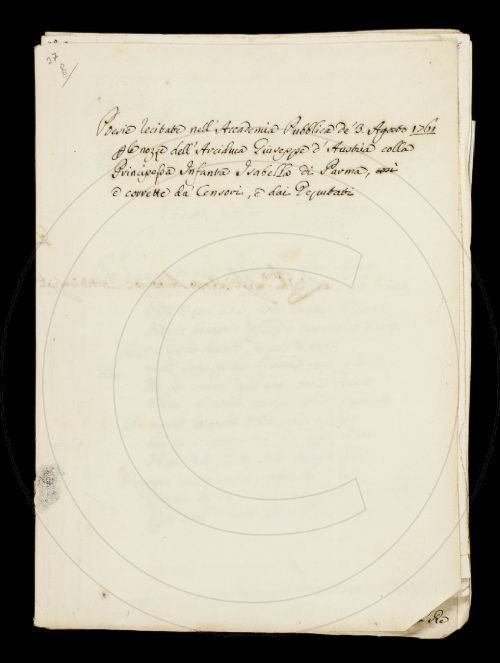 37
8
Poesie recitate nell'Accademia Pubblica de' 3. Agosto 1761
p le nozze dell'Arciduca Giuseppe d'Austria colla
Principessa Infanta Isabella di Parma,
e corrette da' Censori, e dai Deputati